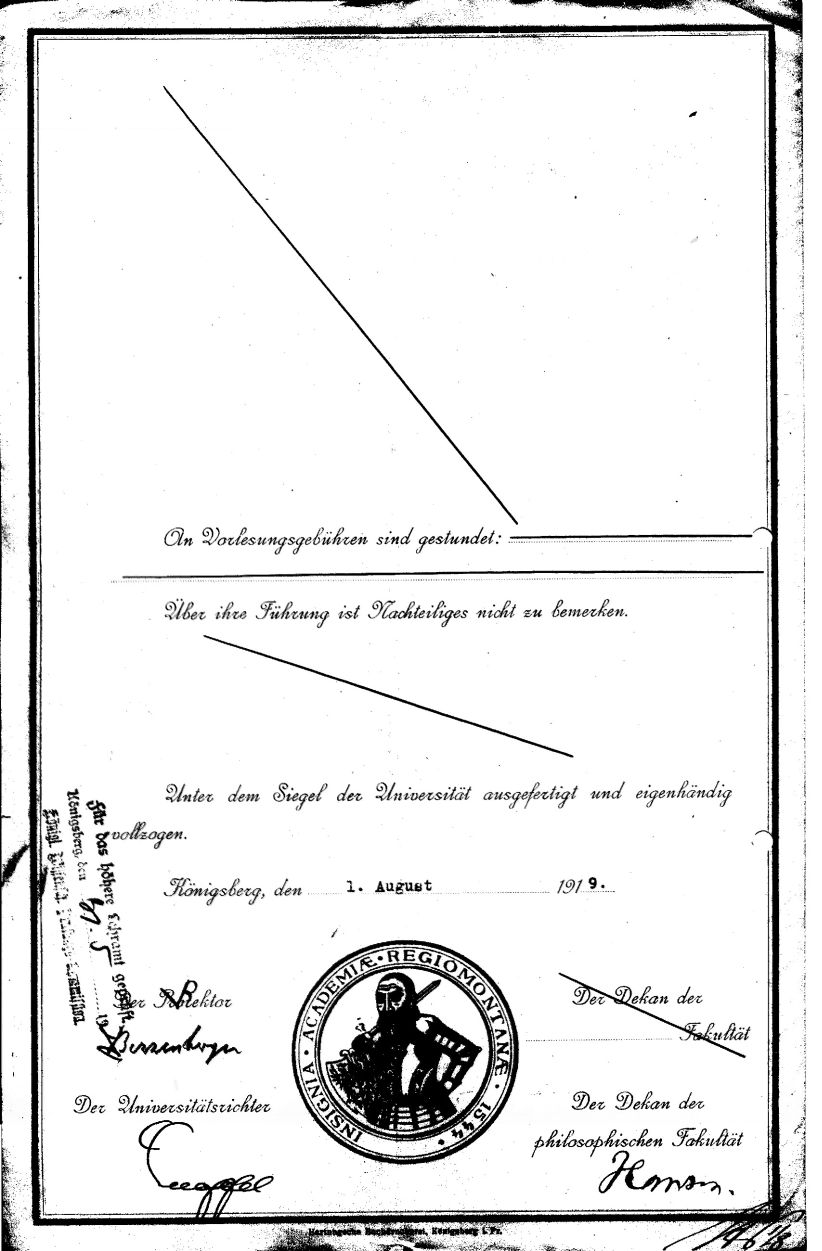 An Vorlesungsgebühren sind gestundet:
Über ihre Führung ist Nachteiliges nicht zu bemerken.
Unter dem Siegel der Universität ausgefertigt und eigenhändig
vollzogen.
Königsberg, den 1. August 1919.
Für das höhere Lehramt geprüft.
Königsberg, den
Der Rektor
INSIGNIA · ACADEMIÆ · REGIOMONTANÆ · 1544 ·
Der Dekan der
Fakultät
Der Universitätsrichter
Der Dekan der
philosophischen Fakultät
Hartungsche Buchdruckerei, Königsberg i. Pr.